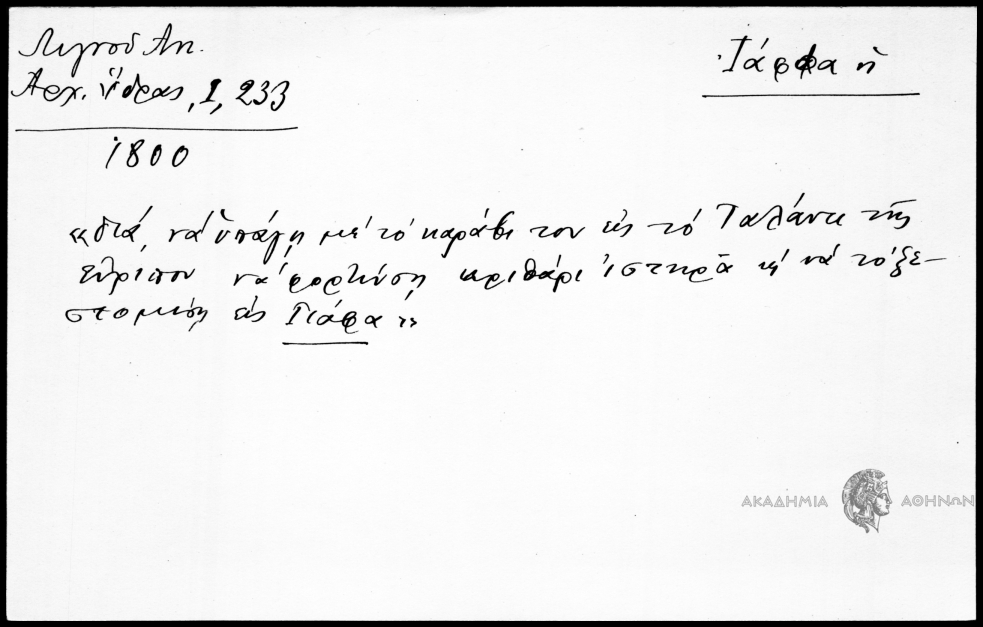 Λιγνοῦ Αν.
Ἀρχ. Ὕδρας, 1, 233
Ἰάφφα ἡ
1800
«διά, νά ὑπάγῃ μέ τό καράβι του εἰς τό Ταλάντι τῆς
Εὐρίπου νά φορτώσῃ κριθάρι ἱστηρᾶ κ' νά τό ξε-
στομίσῃ εἰς Γιάφα»
ΑΚΑΔΗΜΙΑ ΑΘΗΝΩΝ